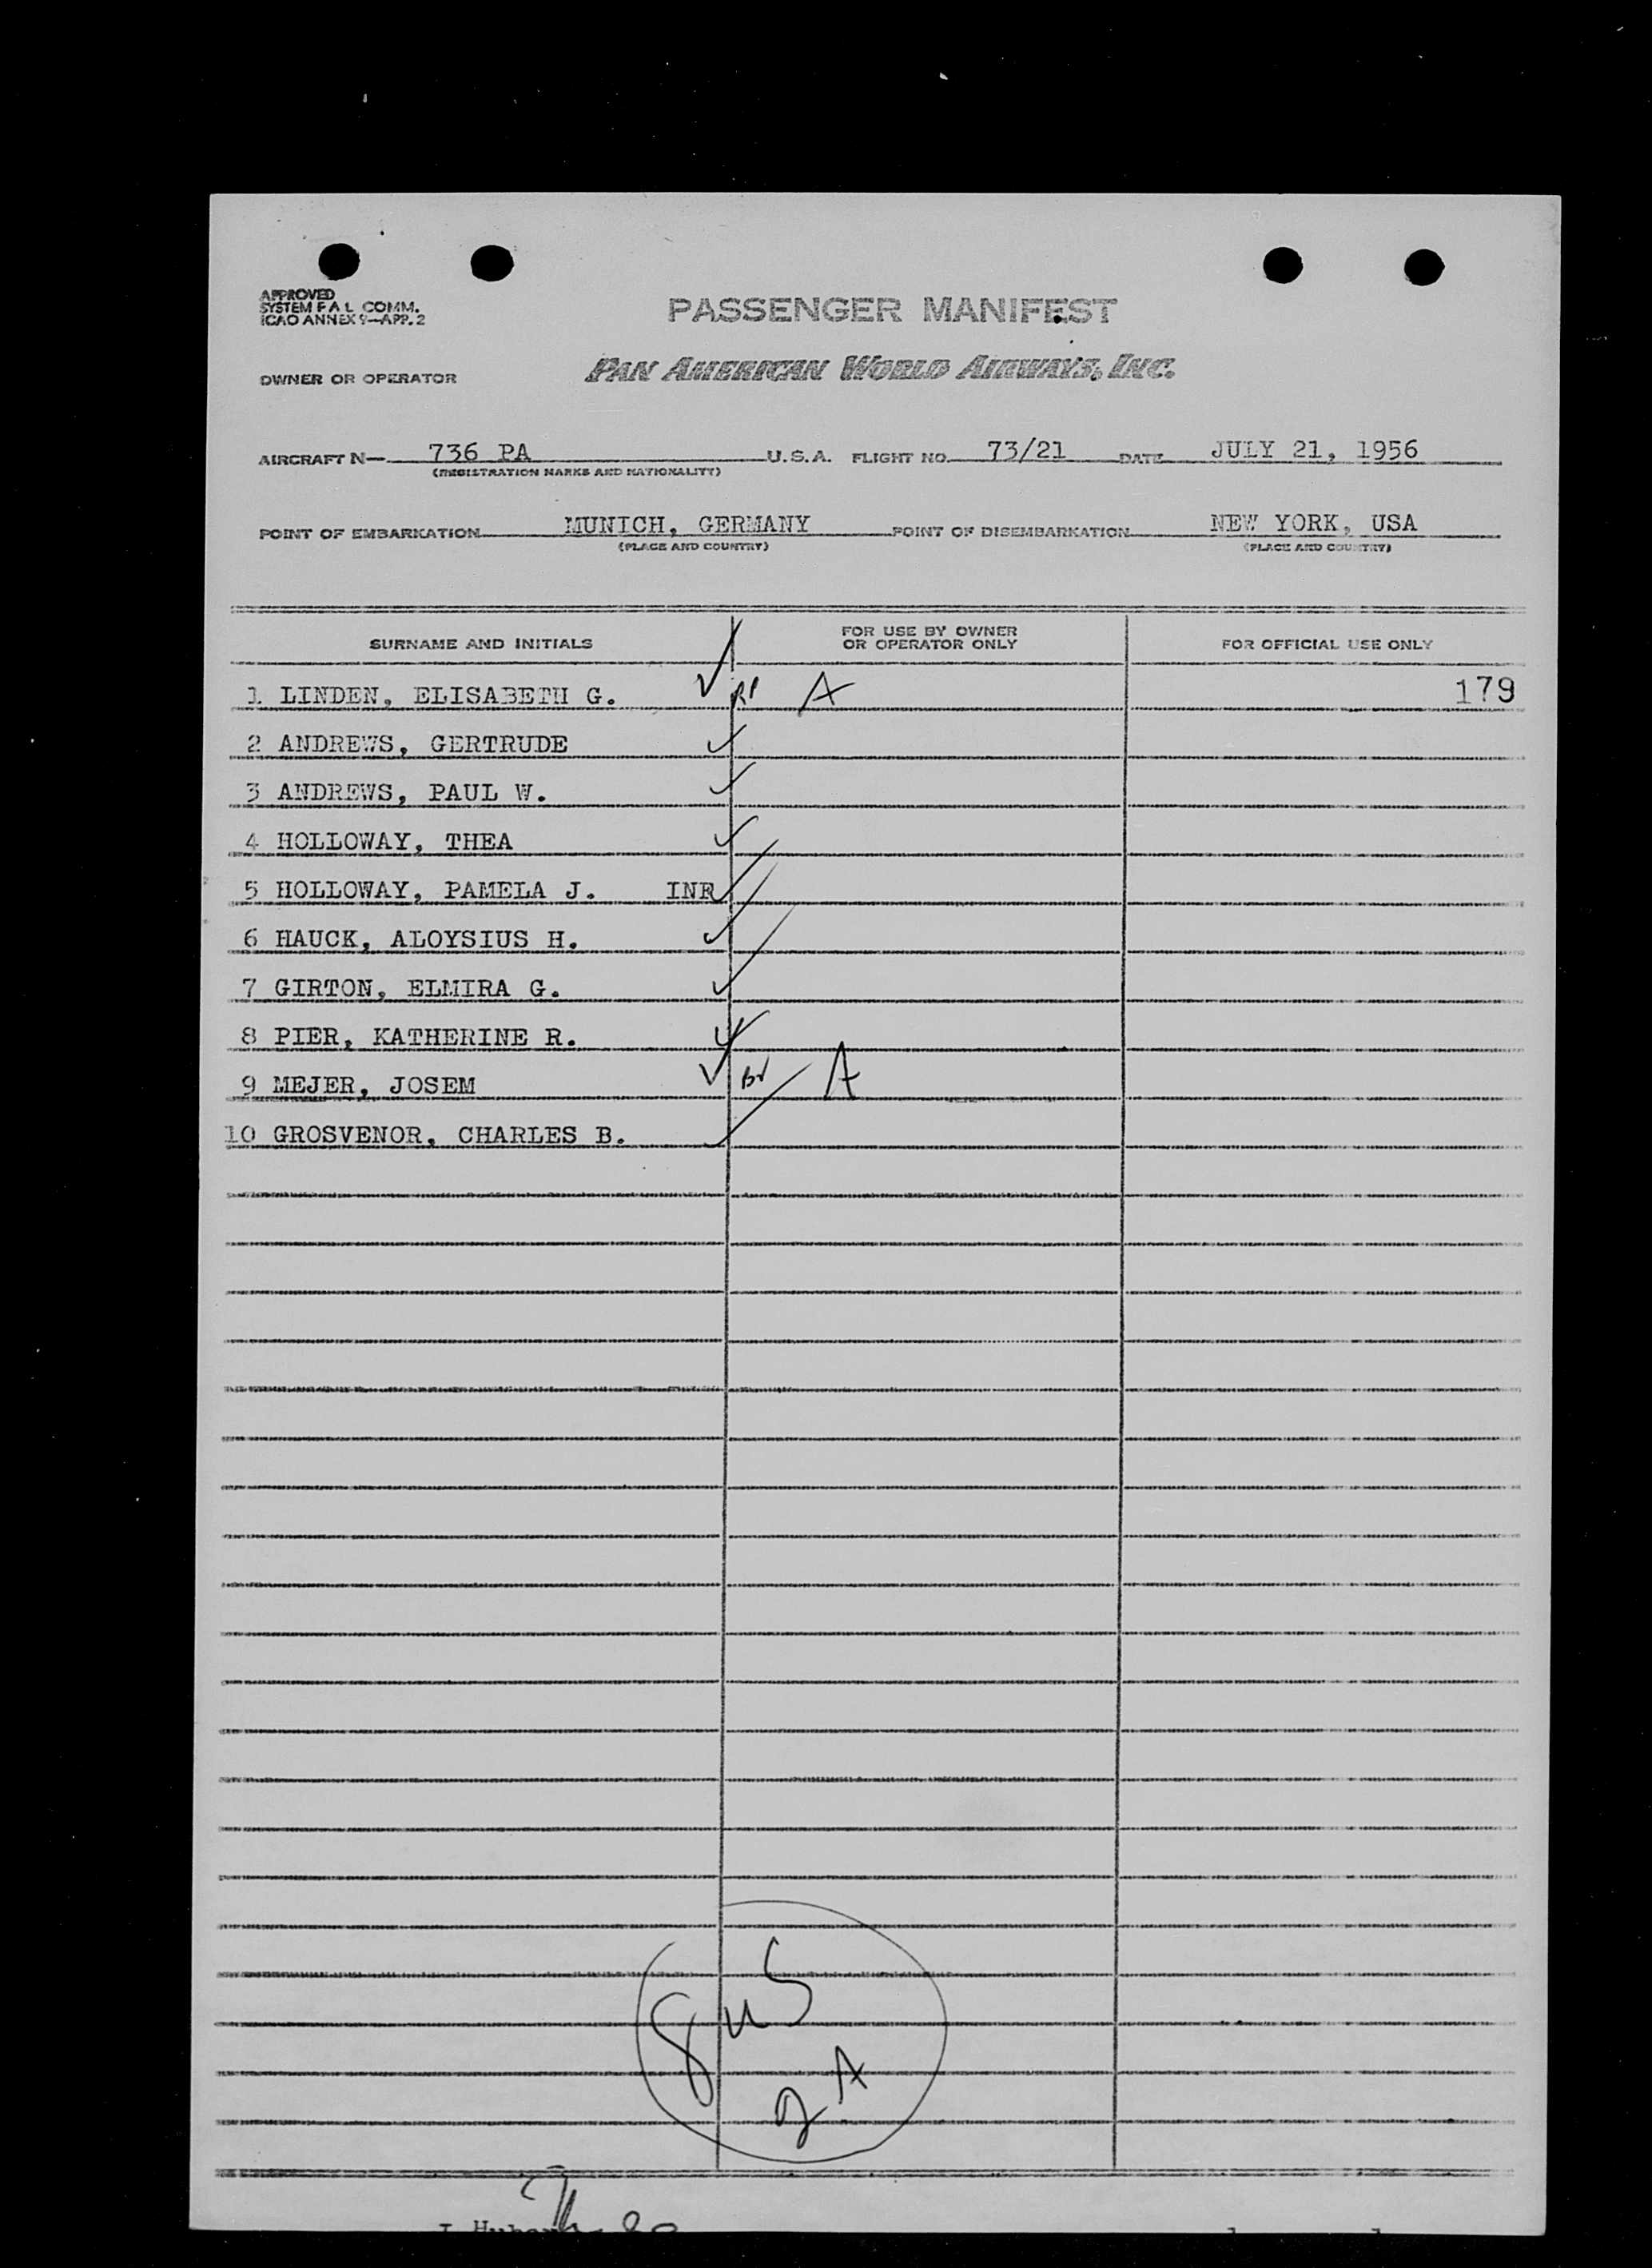 APPROVED
SYSTEM F A L COMM.
ICAO ANNEX 9—APP. 2
PASSENGER MANIFEST
OWNER OR OPERATOR PAN AMERICAN WORLD AIRWAYS, INC.
AIRCRAFT N— 736 PA U.S.A. FLIGHT NO. 73/21 DATE JULY 21, 1956
(REGISTRATION MARKS AND NATIONALITY)
POINT OF EMBARKATION MUNICH, GERMANY POINT OF DISEMBARKATION NEW YORK, USA
(PLACE AND COUNTRY) (PLACE AND COUNTRY)
SURNAME AND INITIALS FOR USE BY OWNER OR OPERATOR ONLY FOR OFFICIAL USE ONLY
1 LINDEN, ELISABETH G. ✓ A 179
2 ANDREWS, GERTRUDE ✓
3 ANDREWS, PAUL W. ✓
4 HOLLOWAY, THEA ✓
5 HOLLOWAY, PAMELA J. INF ✓
6 HAUCK, ALOYSIUS H. ✓
7 GIRTON, ELMIRA G. ✓
8 PIER, KATHERINE R. ✓
9 MEJER, JOSEM ✓ A
10 GROSVENOR, CHARLES B. ✓
8 US
2 A